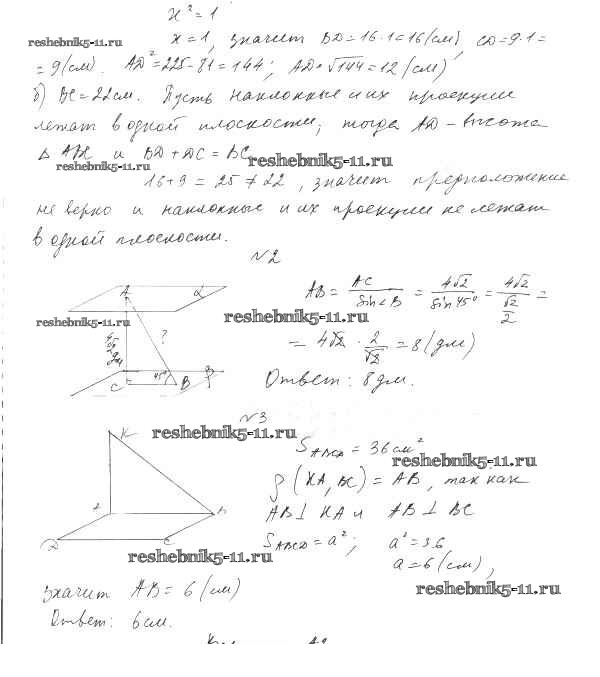 x² = 1
x = 1, значит BD = 16·1 = 16 (см), CD = 9·1 =
reshebnik5-11.ru
= 9 (см). AD² = 225 - 81 = 144; AD = √144 = 12 (см)
б) BC = 22 см. Пусть наклонные и их проекции
лежат в одной плоскости, тогда AD - высота
Δ ABC и BD + DC = BC
reshebnik5-11.ru
reshebnik5-11.ru
16 + 9 = 25 ≠ 22, значит предположение
не верно и наклонные и их проекции не лежат
в одной плоскости.
№2
A α
AB = AC / sin∠B = 4√2 / sin 45° = 4√2 / (√2/2) =
reshebnik5-11.ru
reshebnik5-11.ru
4√2 дм ?
= 4√2 · 2/√2 = 8 (дм)
C 45° B β
Ответ: 8 дм.
№3
K
reshebnik5-11.ru
S ABCD = 36 см²
reshebnik5-11.ru
ρ (KA, BC) = AB, так как
AB ⊥ KA и AB ⊥ BC
S ABCD = a²; a² = 36
D C
reshebnik5-11.ru
a = 6 (см),
reshebnik5-11.ru
значит AB = 6 (см)
Ответ: 6 см.